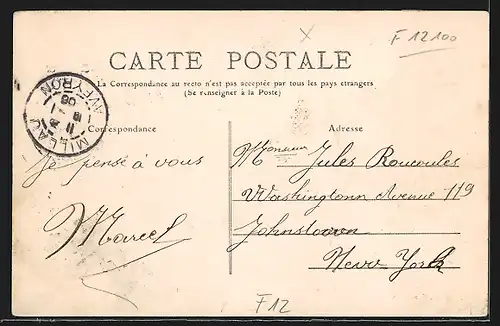 F 12100
CARTE POSTALE
La Correspondance au recto n'est pas acceptée par tous les pays étrangers
(Se renseigner à la Poste)
MILLAU
AVEYRON
Correspondance
Adresse
Je pense à vous
Marcel
Monsieur Jules Roucoules
Washingtonn Avenue 119
Johnstown
New York
F12